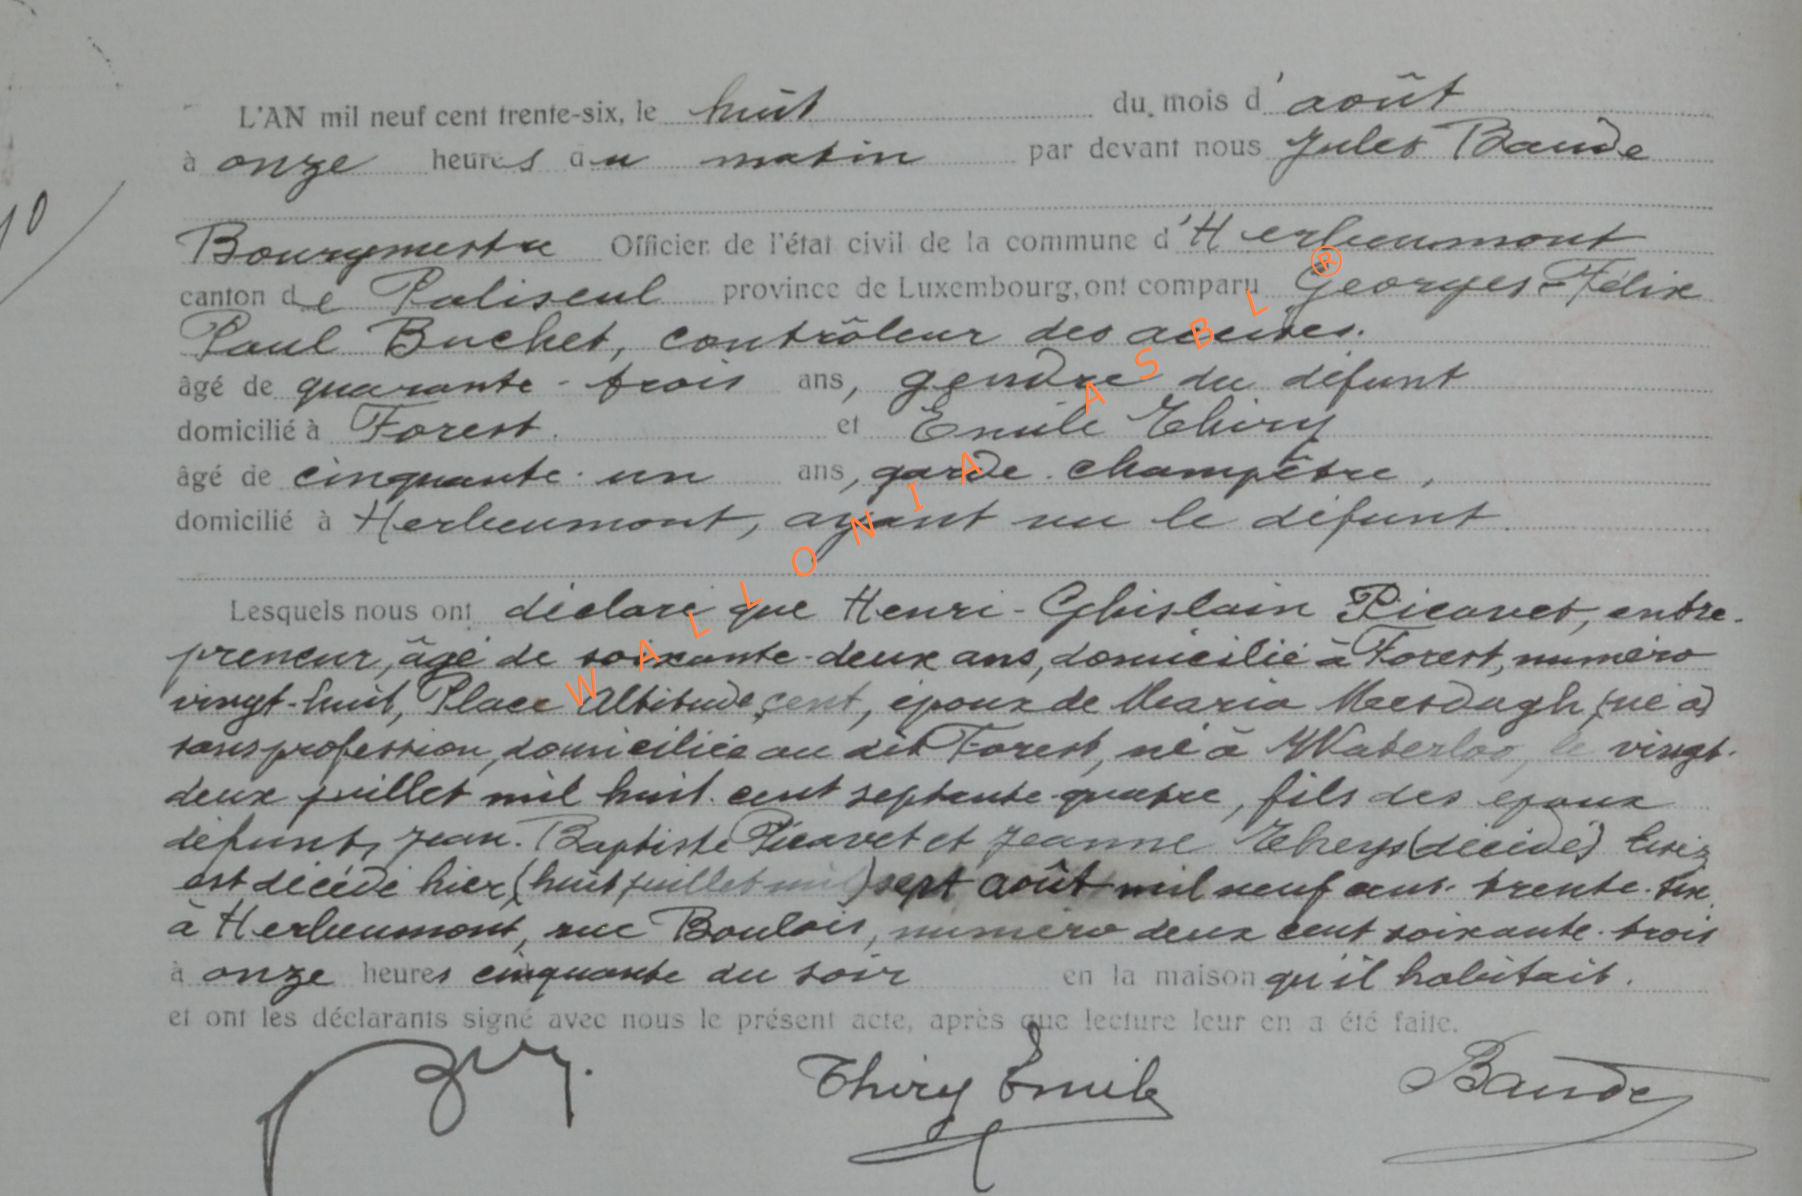 L'AN mil neuf cent trente-six, le huit du mois d'août
à onze heures du matin par devant nous Jules Baude
10
Bourgmestre Officier de l'état civil de la commune d'Herbeumont
canton de Paliseul province de Luxembourg, ont comparu Georges-Félix
Paul Buchet, contrôleur des accises.
âgé de quarante-trois ans, gendre du défunt
domicilié à Forest. et Emile Thiry
âgé de cinquante-un ans, garde-champêtre,
domicilié à Herbeumont, ayant vu le défunt.
Lesquels nous ont déclaré que Henri-Ghislain Picavet, entre-
preneur, âgé de soixante-deux ans, domicilié à Forest, numéro
vingt-huit, Place Altitude cent, époux de Maria Mesdagh (né à)
sans profession, domiciliée au dit Forest, né à Waterloo, le vingt-
deux juillet mil huit cent septante quatre, fils des époux
défunts Jean-Baptiste Picavet et Jeanne Theys (décédé)
est décédé hier (huit juillet mil) sept août mil neuf cent-trente-six
à Herbeumont, rue Boulois, numéro deux cent soixante-trois
à onze heures cinquante du soir en la maison qu'il habitait.
et ont les déclarants signé avec nous le présent acte, après que lecture leur en a été faite.
Thiry Emile Baude
WALLONIA ASBL ®